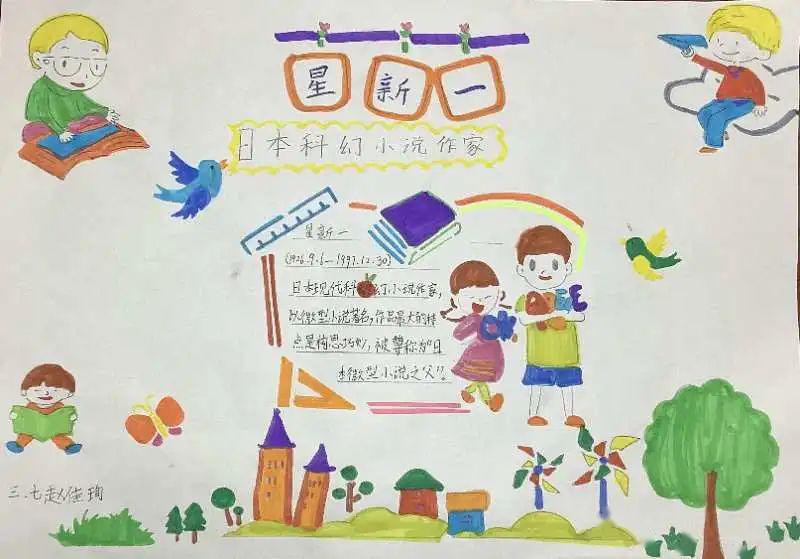 星新一
日本科幻小说作家
星新一
(1926.9.6—1997.12.30)
日本现代科幻小说作家,
以微型小说著名,作品最大的特
点是构思巧妙,被尊称为“日
本微型小说之父”。
三.七赵佳珣